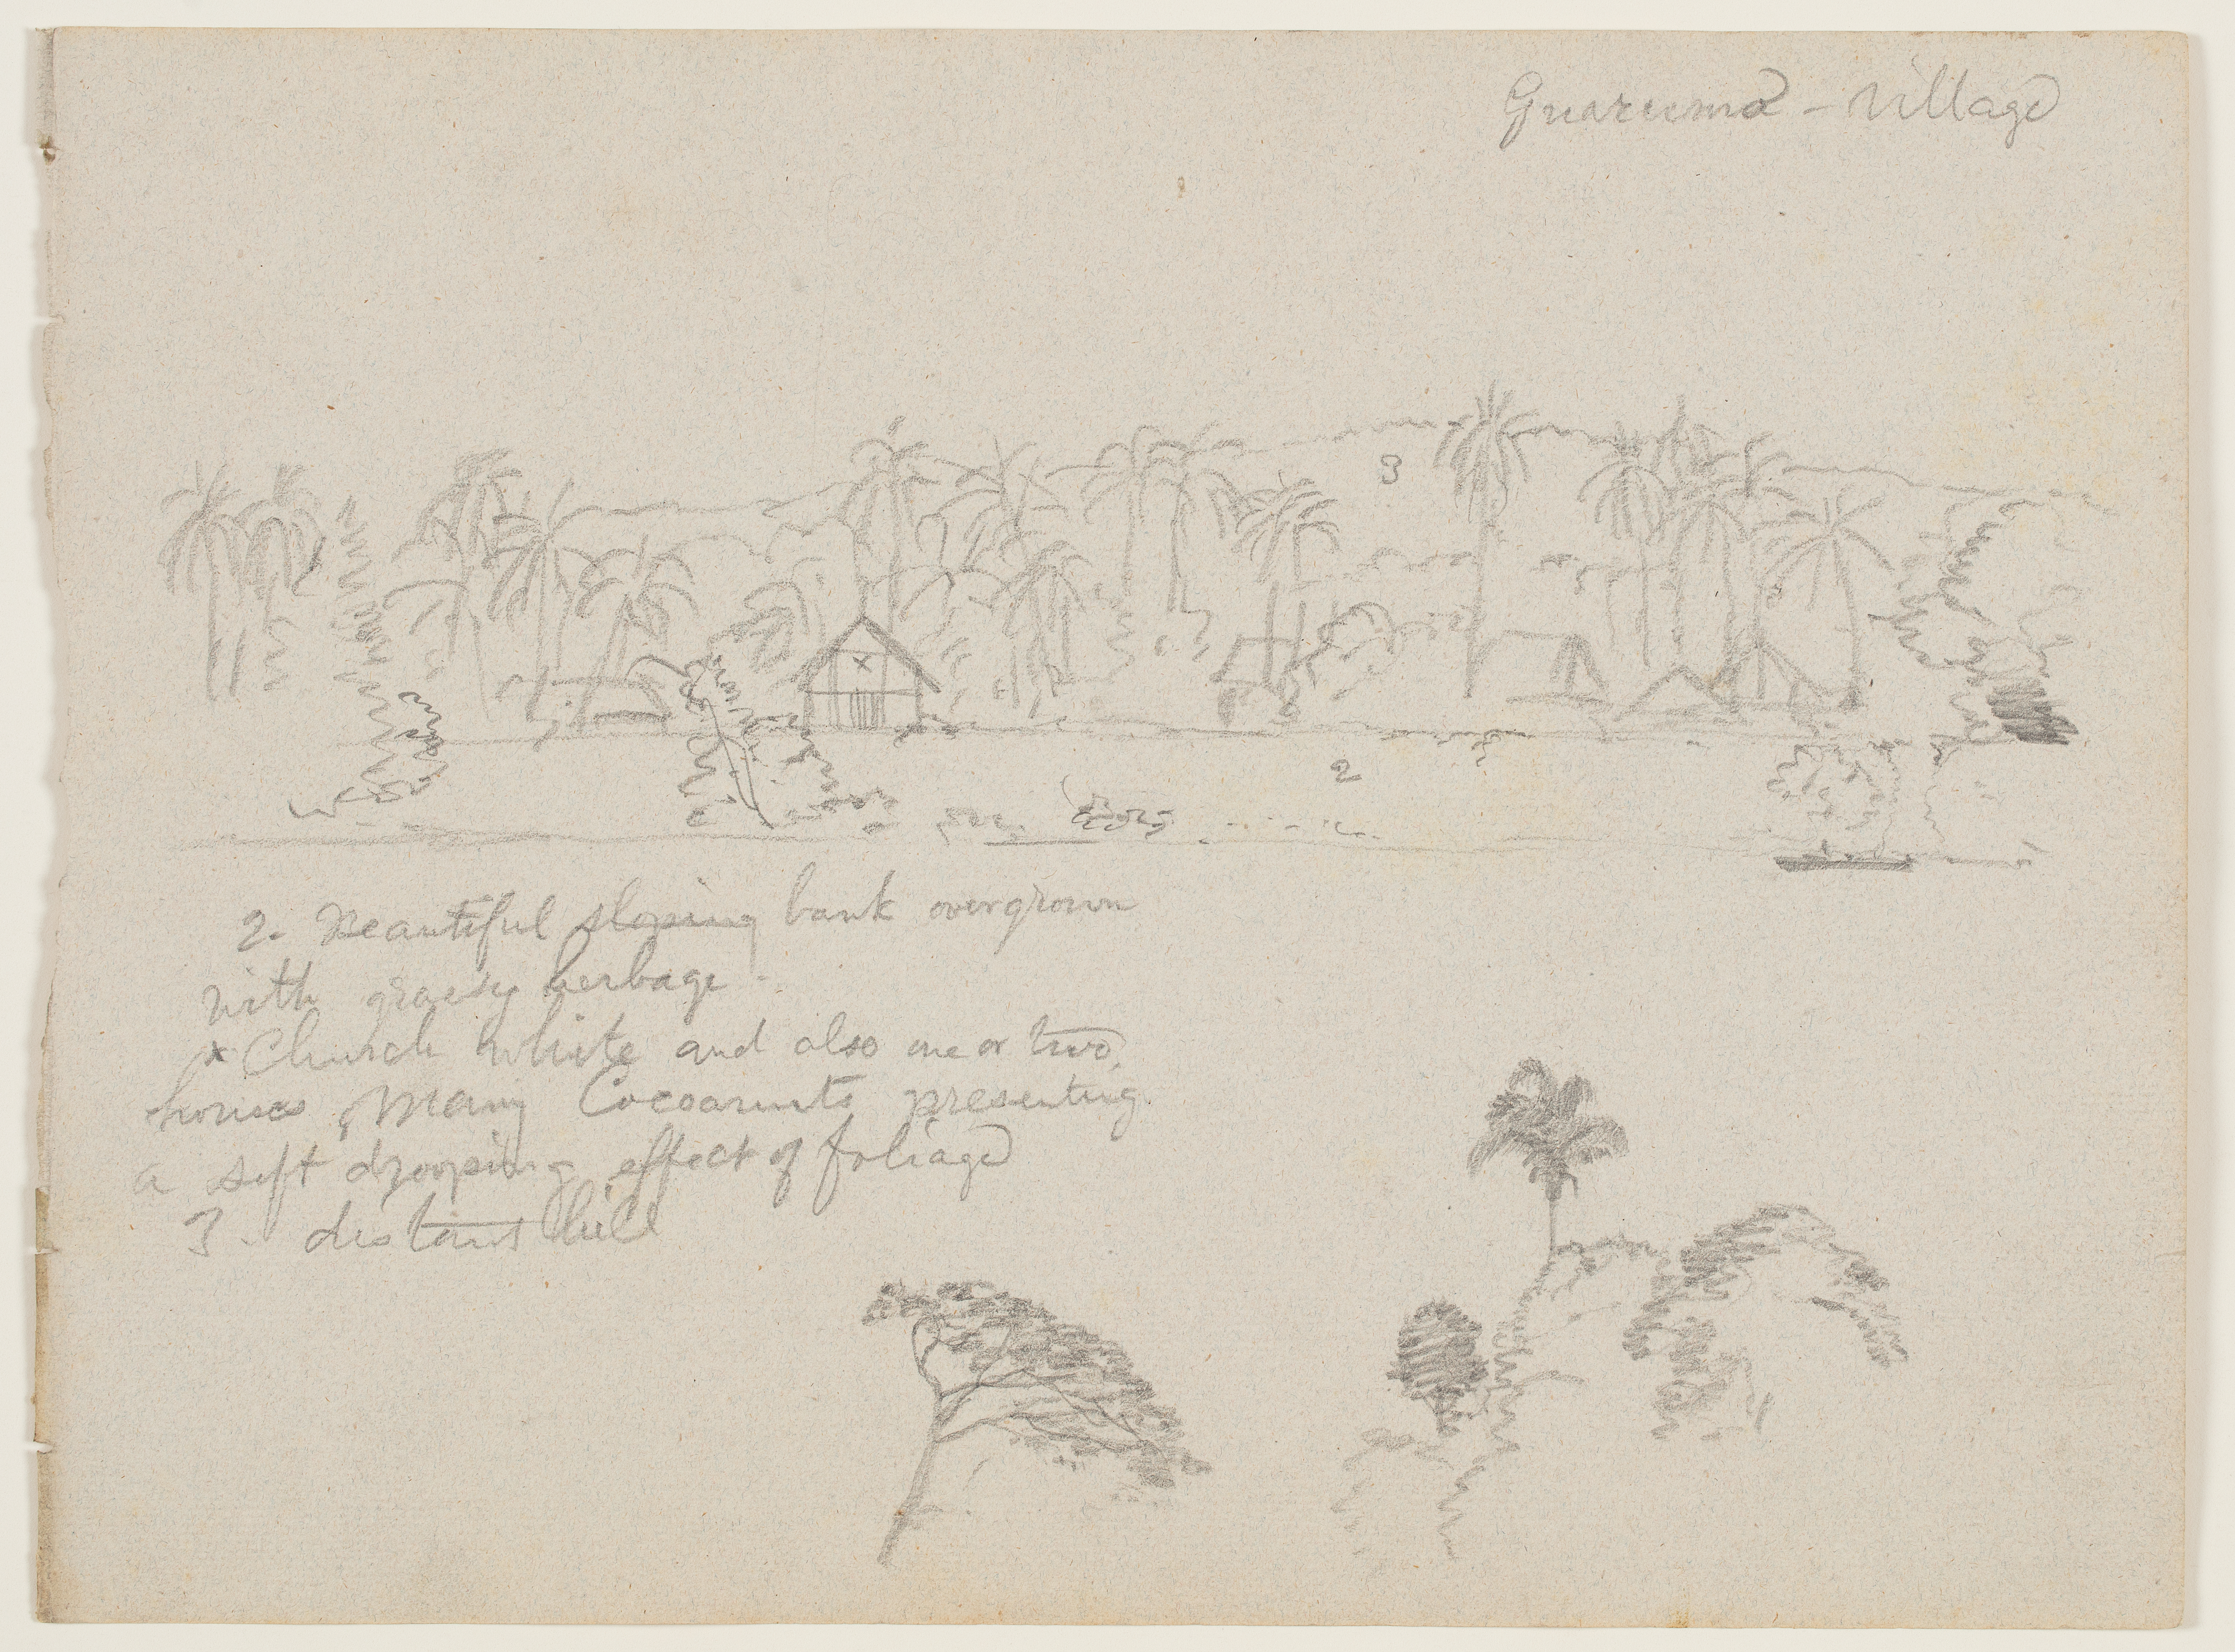 Guarumo - village
3
x
2
2. Beautiful sloping bank overgrown
with grassy herbage.
x Church white and also one or two
houses, Many Cocoanuts presenting
a soft drooping effect of foliage
3. distant hill